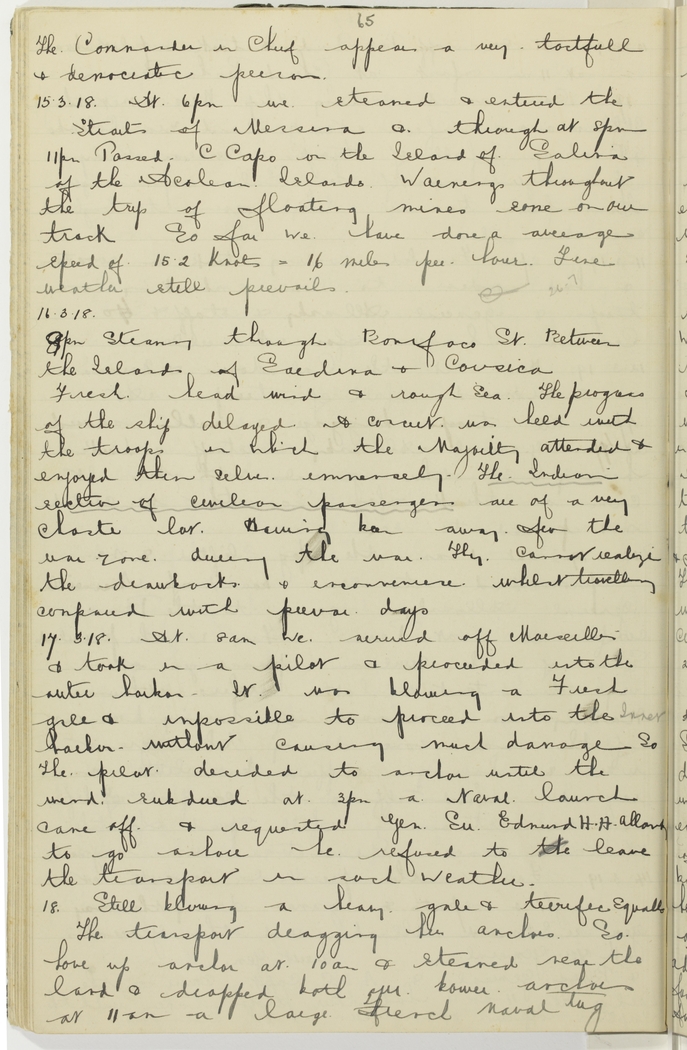 65
The. Commander in Chief appears a very. tactfull
& democratic person.
15.3.18. At. 6pm we. steamed & entered the
Straits of Messina &. through at 8pm
11pm Passed. C Capo on the Island of. Salina
of the Aeolean. Islands. Warnings throughout
the trip of floating mines some on our
track So far we. have done a average
speed of. 15.2 Knots = 16 miles per. hour. Fine
weather still prevails.
16.3.18.
8pm Steaming through Boniface St. Between
the Islands of Sardina & Corsica
Fresh. head wind & rough Sea. The progress
of the ship delayed A concert. was held with
the troops in which the Majority attended &
enjoyed them selves. immensely. The. Indian
section of civilian passengers are of a very
lot. Having been away. from the
war zone. during the war. They. cannot realize
the drawbacks & inconvenience. whilst travelling
compared with prewar. days
17.3.18. At. 8am we. arrived off Marseilles
& took in a pilot & proceeded into the
outer harbor. It. was blowing a Fresh
gale & impossible to proceed into the Inner
harbor. without causing much damage So
The. pilot. decided to anchor until the
wind. subdued at. 3pm a Naval. launch
came off. & requested Gen. Sir. Edmund H.H. Allanby
to go ashore he. refused to the leave
the transport in such weather.
18. Still blowing a heavy. gale & terrifec Squalls
The transport dragging her anchors. So.
hove up anchor at. 10am & steamed near the
land & dropped both our. bower. anchors
at 11am a large. French naval tug